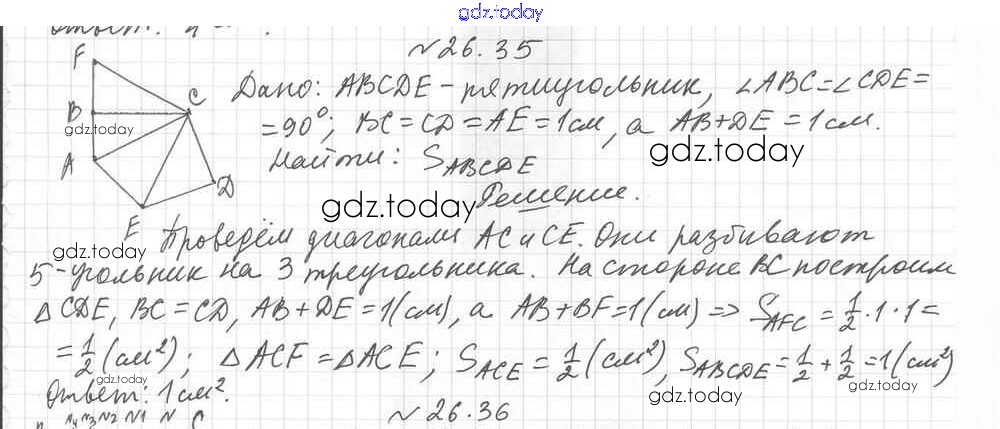 gdz.today
Ответ:
№26.35
F
B
C
A
D
E
gdz.today
Дано: ABCDE – пятиугольник, ∠ABC=∠CDE=
=90°; BC=CD=AE=1см, а AB+DE=1см.
Найти: S_ABCDE
gdz.today
Решение.
gdz.today
Проведём диагонали AC и CE. Они разбивают
gdz.today
5-угольник на 3 треугольника. На стороне BC построим
△CDE, BC=CD, AB+DE=1(см), а AB+BF=1(см) => S_AFC = 1/2·1·1=
=1/2(см²); △ACF=△ACE; S_ACE=1/2(см²), S_ABCDE=1/2+1/2=1(см²)
gdz.today
Ответ: 1см².
gdz.today
gdz.today
№26.36